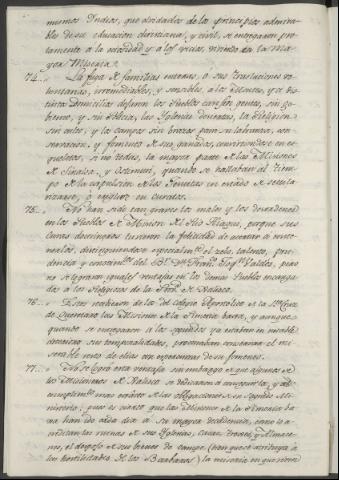 mismos Indios, que olvidados de los principios admira-
bles de su educacion christiana, y civil, se entregaron pron-
tamente a la ociosidad y a los vicios, viviendo en la ma-
yor Miseria.
74.. La fuga de familias enteras, o sus traslaciones vo-
luntarias, irremediables, y a los Montes, y a di-
stintos Domicilios dejaron los Pueblos con poca gente, sin go-
bierno, y sin Policia, las Iglesias la Religion
sin culto, y los campos sin brazos para su labranza, con-
servacion, y fomento de sus ganados, convirtiendose en es-
queletos, si no todas, la mayor parte de las Misiones
de Sinaloa, y Ostimuri, quando se hallaban al tiem-
po de la expulsion de los Jesuitas en estado de secula-
rizarse, o erigirse en curatos.
75.. No han sido tan graves los males y los desordenes
en los Pueblos de Mision del Rio Yaqui, porque sus
curas doctrineros tuvieron la felicidad de acertar a mane-
jarlos, distinguiendose el zelo, talento, pru-
dencia y constancia del Br. Dn. Franco. Joaqn. Valdes, pero
no se lograron iguales ventajas en los demas Pueblos encarga-
dos a los Religiosos de la Prov. de Xalisco.
76.. Estos recibieron de los del colegio Apostolico de la Sta. Cruz
de Queretaro las Misiones de la Pimeria baxa, y aunque
quando se encargaron a los segundos ya estaban en notable
decadencia sus temporalidades, procuraban conservar el mi-
serable resto de ellas con esperanzas de su fomento.
77.. No se logró esta ventaja sin embargo de que algunos de
los Misioneros de Xalisco se dedicaron a conseguirla, y al
cumplimto. mas exacto de las obligaciones de su sagrado Mi-
nisterio, pues es cierto que las Misiones de la Pimeria ba-
xa han ido cada dia a su mayor decadencia, como lo a-
creditan las ruinas de sus Iglesias, Casas, Troxes, y Almace-
nes, el despojo de sus bienes de campo (han que se atribuya a
las hostilidades de los Barbaros) la miseria en que viven